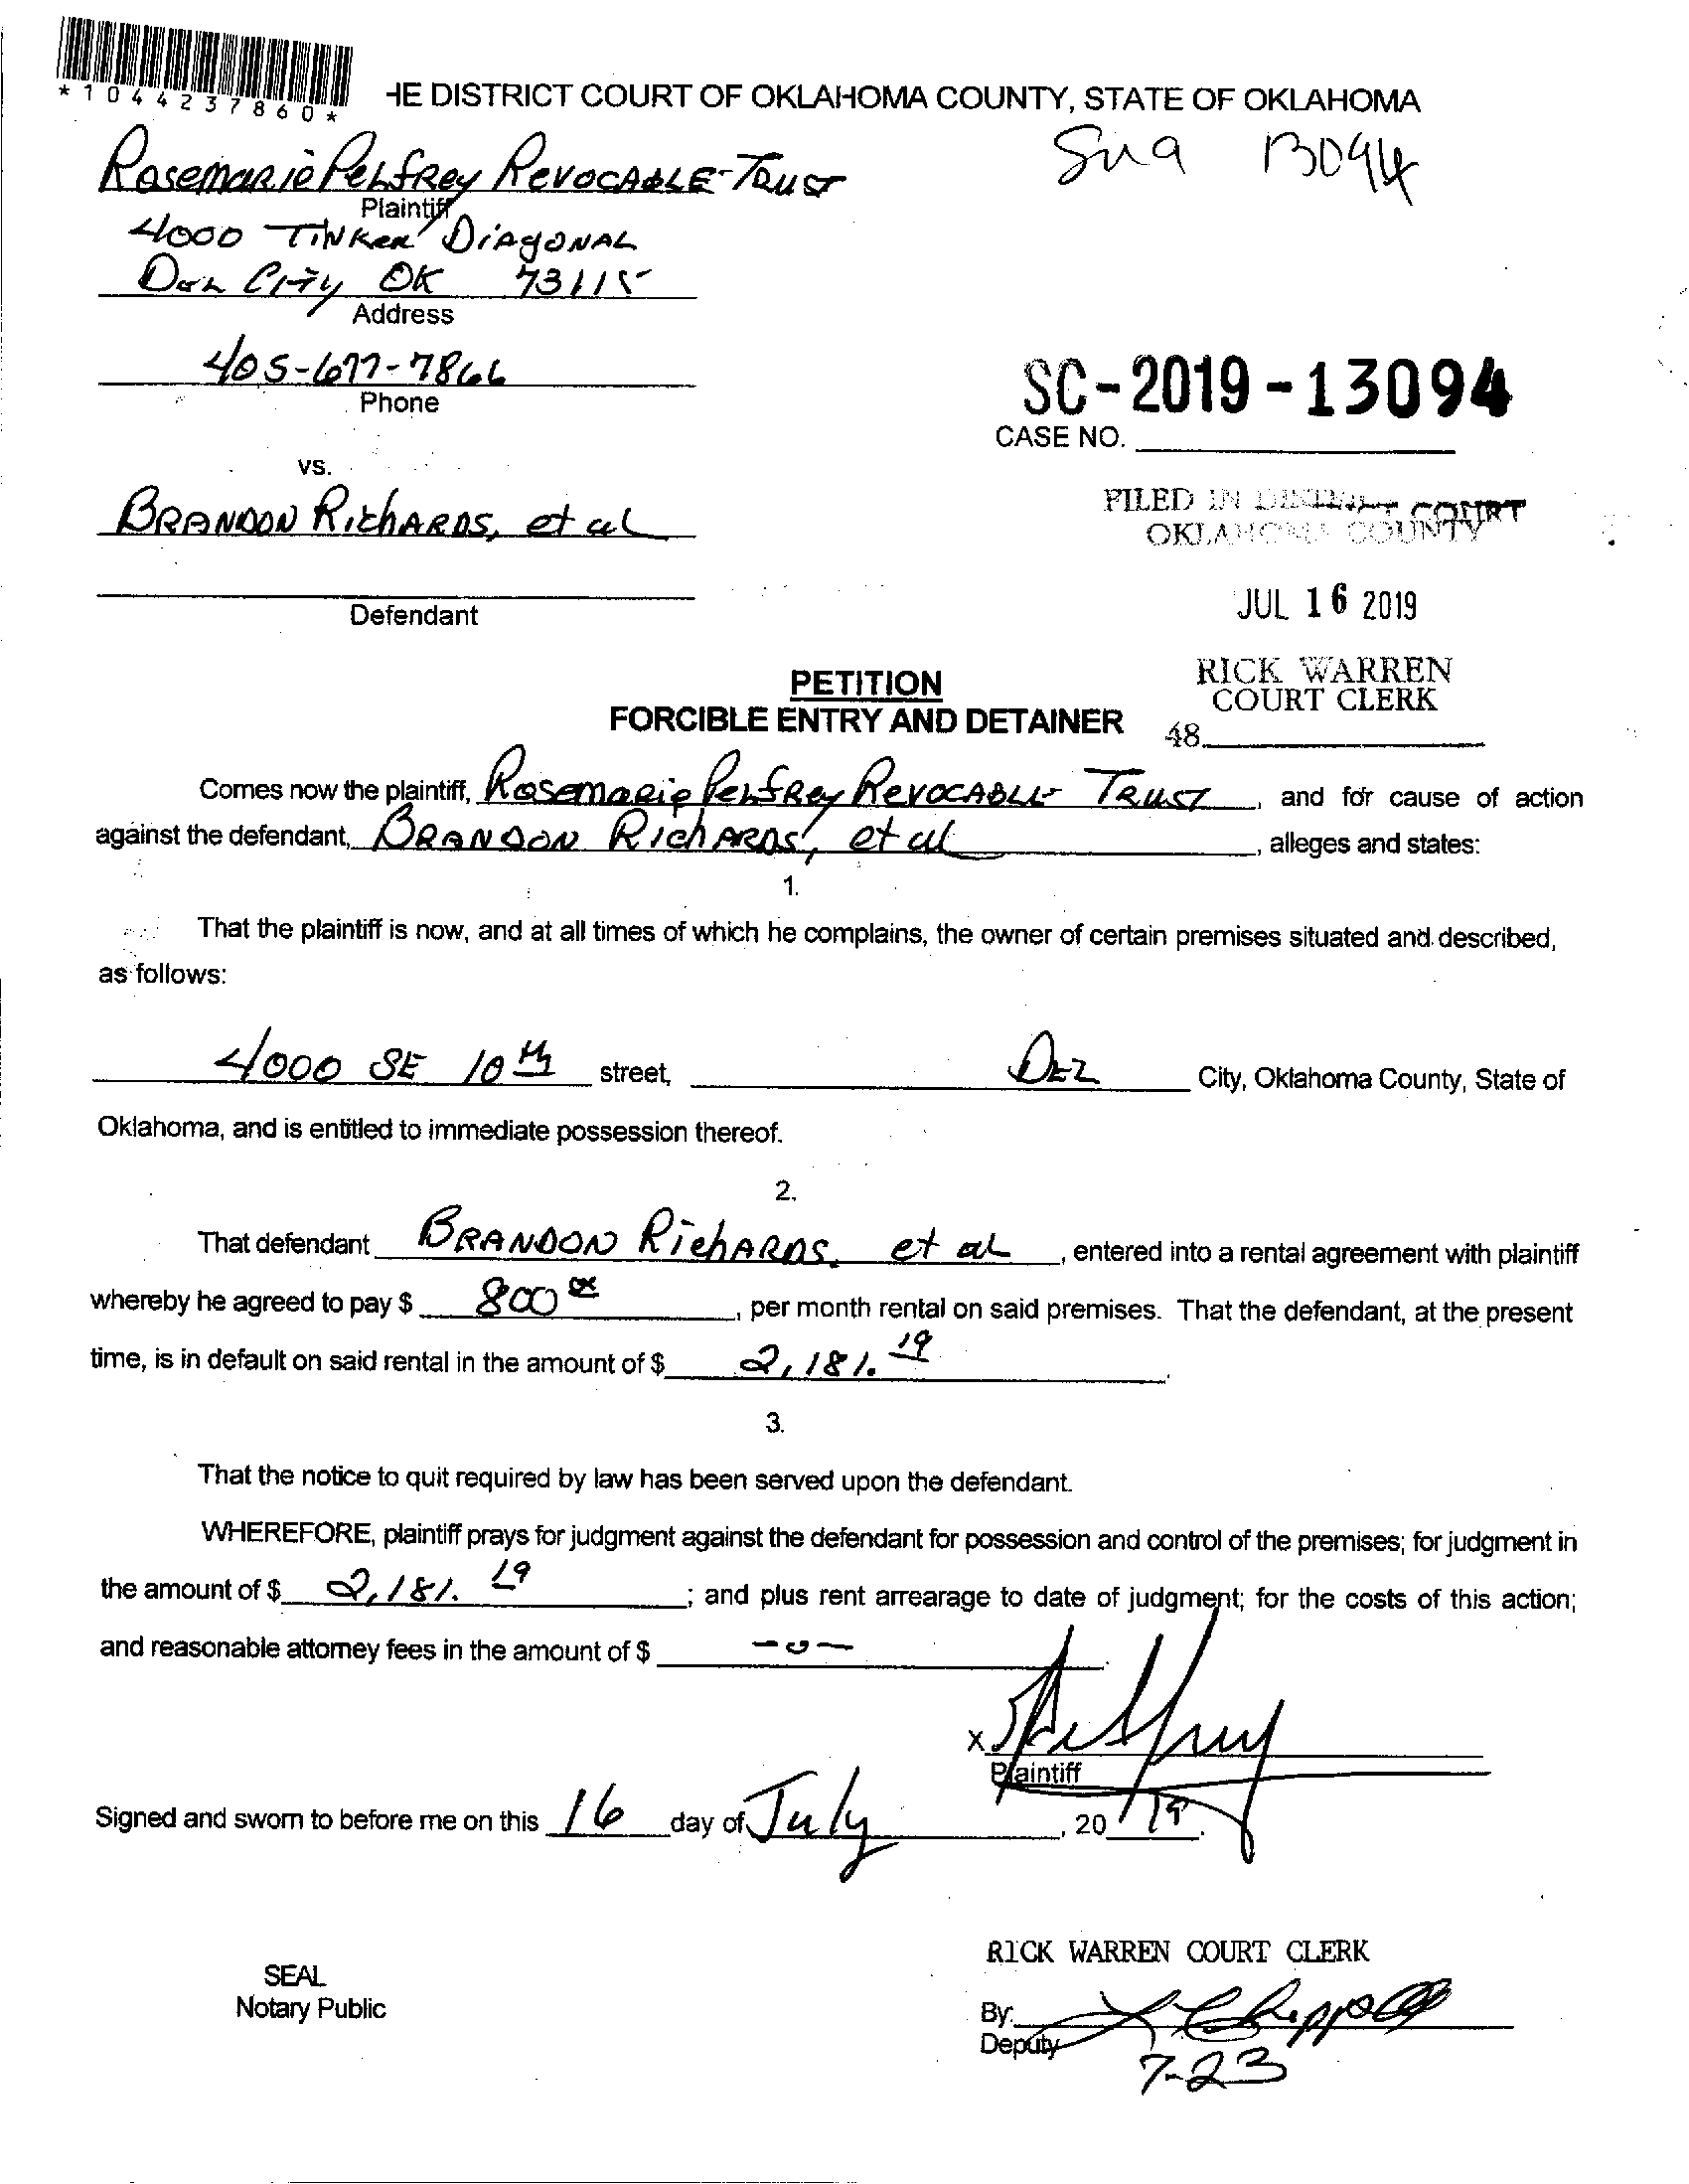 *1044237860*
HE DISTRICT COURT OF OKLAHOMA COUNTY, STATE OF OKLAHOMA
Rosemarie Pelfrey Revocable Trust
Plaintiff
4000 Tinker Diagonal
Del City OK 73115
Address
405-677-7866
Phone
SC-2019-13094
CASE NO.
vs.
Brandon Richards, et al
FILED IN DISTRICT COURT
OKLAHOMA COUNTY
JUL 16 2019
Defendant
RICK WARREN
COURT CLERK
48
PETITION
FORCIBLE ENTRY AND DETAINER
Comes now the plaintiff, Rosemarie Pelfrey Revocable Trust, and for cause of action
against the defendant, Brandon Richards, et al, alleges and states:
1.
That the plaintiff is now, and at all times of which he complains, the owner of certain premises situated and described,
as follows:
4000 SE 10th street, Del City, Oklahoma County, State of
Oklahoma, and is entitled to immediate possession thereof.
2.
That defendant Brandon Richards, et al, entered into a rental agreement with plaintiff
whereby he agreed to pay $ 800 00, per month rental on said premises. That the defendant, at the present
time, is in default on said rental in the amount of $ 2,181.19.
3.
That the notice to quit required by law has been served upon the defendant.
WHEREFORE, plaintiff prays for judgment against the defendant for possession and control of the premises; for judgment in
the amount of $ 2,181.19; and plus rent arrearage to date of judgment; for the costs of this action;
and reasonable attorney fees in the amount of $ -0-.
X
Plaintiff
Signed and sworn to before me on this 16 day of July, 2019.
RICK WARREN COURT CLERK
SEAL
Notary Public
By:
Deputy
7-23